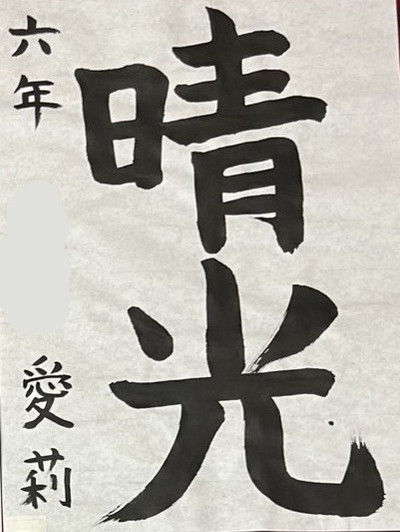 晴光
六年 愛莉